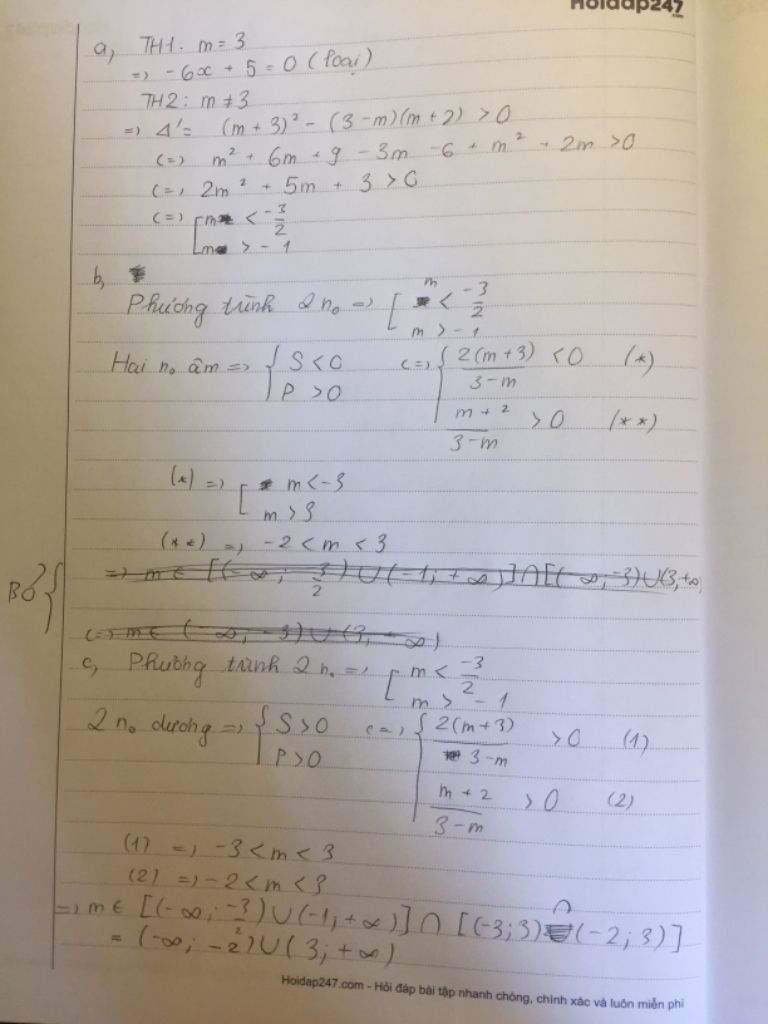 Hoidap247
.com
a, TH1: m = 3
=> -6x + 5 = 0 (loại)
TH2: m ≠ 3
=> Δ' = (m + 3)² - (3 - m)(m + 2) > 0
<=> m² + 6m + 9 - 3m - 6 + m² + 2m > 0
<=> 2m² + 5m + 3 > 0
<=> [ m < -3/2
m > -1
b,
Phương trình 2 n₀ => [ m < -3/2
m > -1
Hai n₀ âm => { S < 0 <=> { 2(m+3)/(3-m) < 0 (*)
P > 0 (m+2)/(3-m) > 0 (**)
(*) => [ m < -3
m > 3
(**) => -2 < m < 3
=> m ∈ [(-∞; -3/2) ∪ (-1; +∞)] ∩ [(-∞; -3) ∪ (3; +∞)
BỎ {
<=> m ∈ (-∞; -3) ∪ (3; -∞)
c, Phương trình 2 n₀ => [ m < -3/2
m > -1
2 n₀ dương => { S > 0 <=> { 2(m+3)/(3-m) > 0 (1)
P > 0 (m+2)/(3-m) > 0 (2)
(1) => -3 < m < 3
(2) => -2 < m < 3
=> m ∈ [(-∞; -3/2) ∪ (-1; +∞)] ∩ [(-3; 3) ∩ (-2; 3)]
= (-∞; -2) ∪ (3; +∞)
Hoidap247.com - Hỏi đáp bài tập nhanh chóng, chính xác và luôn miễn phí